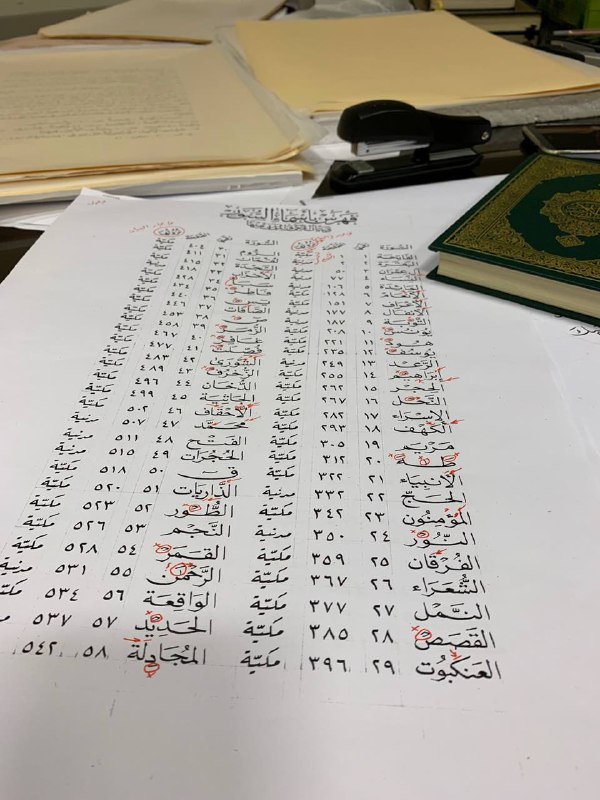 فهرس بأسماء السور
السورة السورة
الفاتحة ١ مكية الروم ٣٠ ٤٠٤ مكية
البقرة ٢ ٢ لقمان ٣١ ٤١١ مكية
آل عمران ٣ ٥٠ السجدة ٣٢ ٤١٥ مكية
النساء ٤ ٧٧ الأحزاب ٣٣ ٤١٨
المائدة ٥ ١٠٦ سبأ ٣٤ ٤٢٨ مكية
الأنعام ٦ ١٢٨ مكية فاطر ٣٥ ٤٣٤ مكية
الأعراف ٧ ١٥١ مكية يس ٣٦ ٤٤٠ مكية
الأنفال ٨ ١٧٧ مدنية الصافات ٣٧ ٤٤٦ مكية
التوبة ٩ ١٨٧ مدنية ص ٣٨ ٤٥٣ مكية
يونس ١٠ ٢٠٨ مكية الزمر ٣٩ ٤٥٨ مكية
هود ١١ ٢٢١ مكية غافر ٤٠ ٤٦٧ مكية
يوسف ١٢ ٢٣٥ مكية فصلت ٤١ ٤٧٧ مكية
الرعد ١٣ ٢٤٩ مدنية الشورى ٤٢ ٤٨٣ مكية
إبراهيم ١٤ ٢٥٥ مكية الزخرف ٤٣ ٤٨٩ مكية
الحجر ١٥ ٢٦٢ مكية الدخان ٤٤ ٤٩٦ مكية
النحل ١٦ ٢٦٧ مكية الجاثية ٤٥ ٤٩٩ مكية
الإسراء ١٧ ٢٨٢ مكية الأحقاف ٤٦ ٥٠٢ مكية
الكهف ١٨ ٢٩٣ مكية محمد ٤٧ ٥٠٧ مدنية
مريم ١٩ ٣٠٥ مكية الفتح ٤٨ ٥١١ مدنية
طه ٢٠ ٣١٢ مكية الحجرات ٤٩ ٥١٥ مدنية
الأنبياء ٢١ ٣٢٢ مكية ق ٥٠ ٥١٨ مكية
الحج ٢٢ ٣٣٢ مدنية الذاريات ٥١ ٥٢٠ مكية
المؤمنون ٢٣ ٣٤٢ مكية الطور ٥٢ ٥٢٣ مكية
النور ٢٤ ٣٥٠ مدنية النجم ٥٣ ٥٢٦ مكية
الفرقان ٢٥ ٣٥٩ مكية القمر ٥٤ ٥٢٨ مكية
الشعراء ٢٦ ٣٦٧ مكية الرحمن ٥٥ ٥٣١ مدنية
النمل ٢٧ ٣٧٧ مكية الواقعة ٥٦ ٥٣٤
القصص ٢٨ ٣٨٥ مكية الحديد ٥٧ ٥٣٧
العنكبوت ٢٩ ٣٩٦ مكية المجادلة ٥٨ ٥٤٢